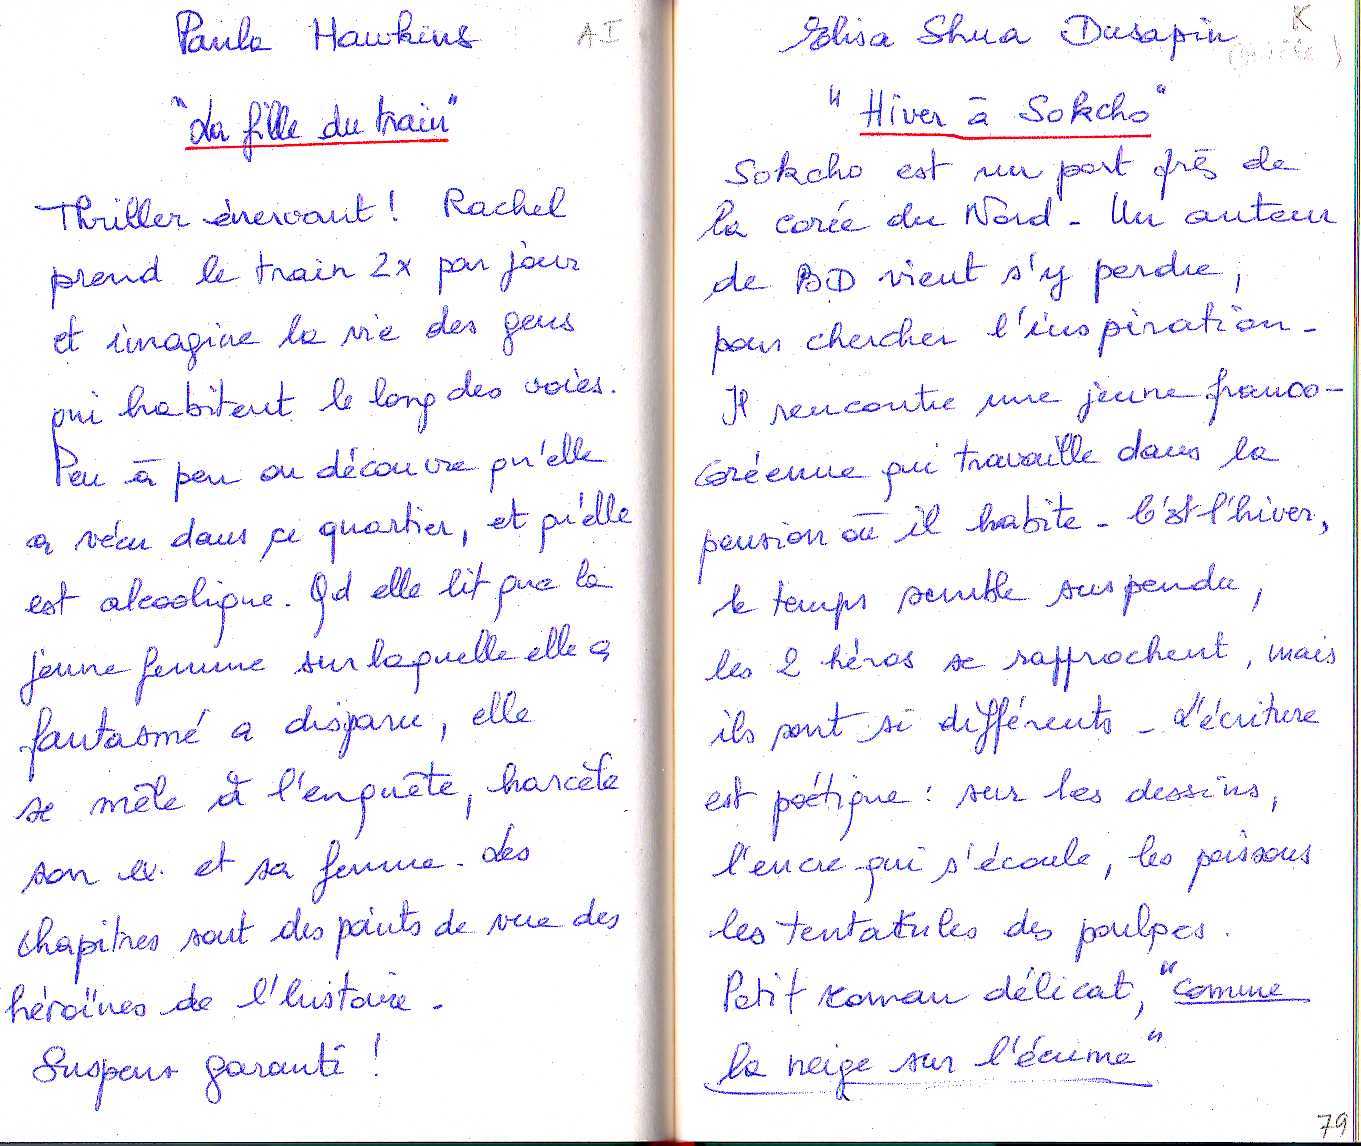 Paula Hawkins AI
"La fille du train"
Thriller énervant! Rachel
prend le train 2x par jour
et imagine la vie des gens
qui habitent le long des voies.
Peu à peu on découvre qu'elle
a vécu dans ce quartier, et qu'elle
est alcoolique. Qd elle lit que la
jeune femme sur laquelle elle a
fantasmé a disparu, elle
se mêle à l'enquête, harcèle
son ex. et sa femme. Les
chapitres sont des points de vue des
héroïnes de l'histoire.
Suspens garanti!
Elisa Shua Dusapin K
"Hiver à Sokcho"
Sokcho est un port près de
la corée du Nord - Un auteur
de BD vient s'y perdre,
pour chercher l'inspiration -
Il rencontre une jeune franco-
coréenne qui travaille dans la
pension où il habite - C'est l'hiver,
le temps semble suspendu,
les 2 héros se rapprochent, mais
ils sont si différents - L'écriture
est poétique : sur les dessins,
l'encre qui s'écoule, les poissons
les tentakules des poulpes.
Petit roman délicat, "comme
la neige sur l'écume"
79